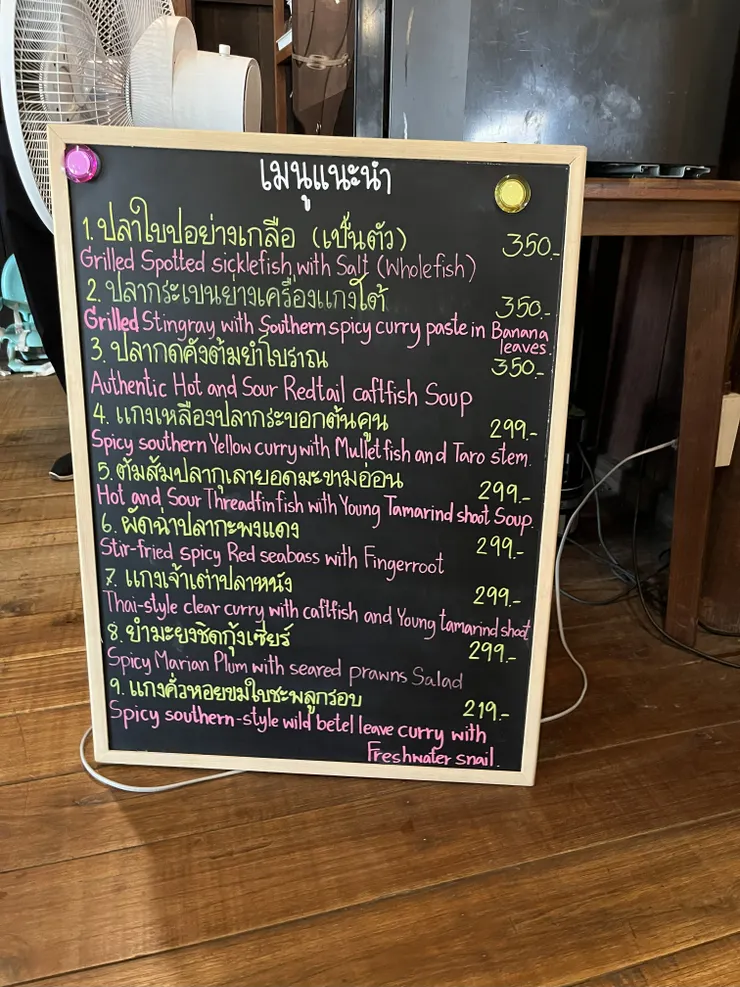 เมนูแนะนำ
1. ปลาใบปอย่างเกลือ (เป็นตัว) 350.-
Grilled Spotted sicklefish with Salt (Whole fish)
2. ปลากระเบนย่างเครื่องแกงใต้ 350.-
Grilled Stingray with Southern spicy curry paste in Banana
leaves.
3. ปลากดคังต้มยำโบราณ 350.-
Authentic Hot and Sour Redtail catfish Soup
4. แกงเหลืองปลากระบอกต้นคูน 299.-
Spicy southern Yellow curry with Mullet fish and Taro stem.
5. ต้มส้มปลากุเลายอดมะขามอ่อน 299.-
Hot and Sour Threadfin fish with Young Tamarind shoot Soup.
6. ผัดฉ่าปลากะพงแดง 299.-
Stir-fried spicy Red seabass with Fingerroot
7. แกงเจ้าเต่าปลาหนัง 299.-
Thai-style clear curry with catfish and Young tamarind shoot
8. ยำมะยงชิดกุ้งเซียร์ 299.-
Spicy Marian Plum with seared prawns Salad
9. แกงคั่วหอยขมใบชะพลูกรอบ 219.-
Spicy southern-style wild betel leave curry with
Freshwater snail.